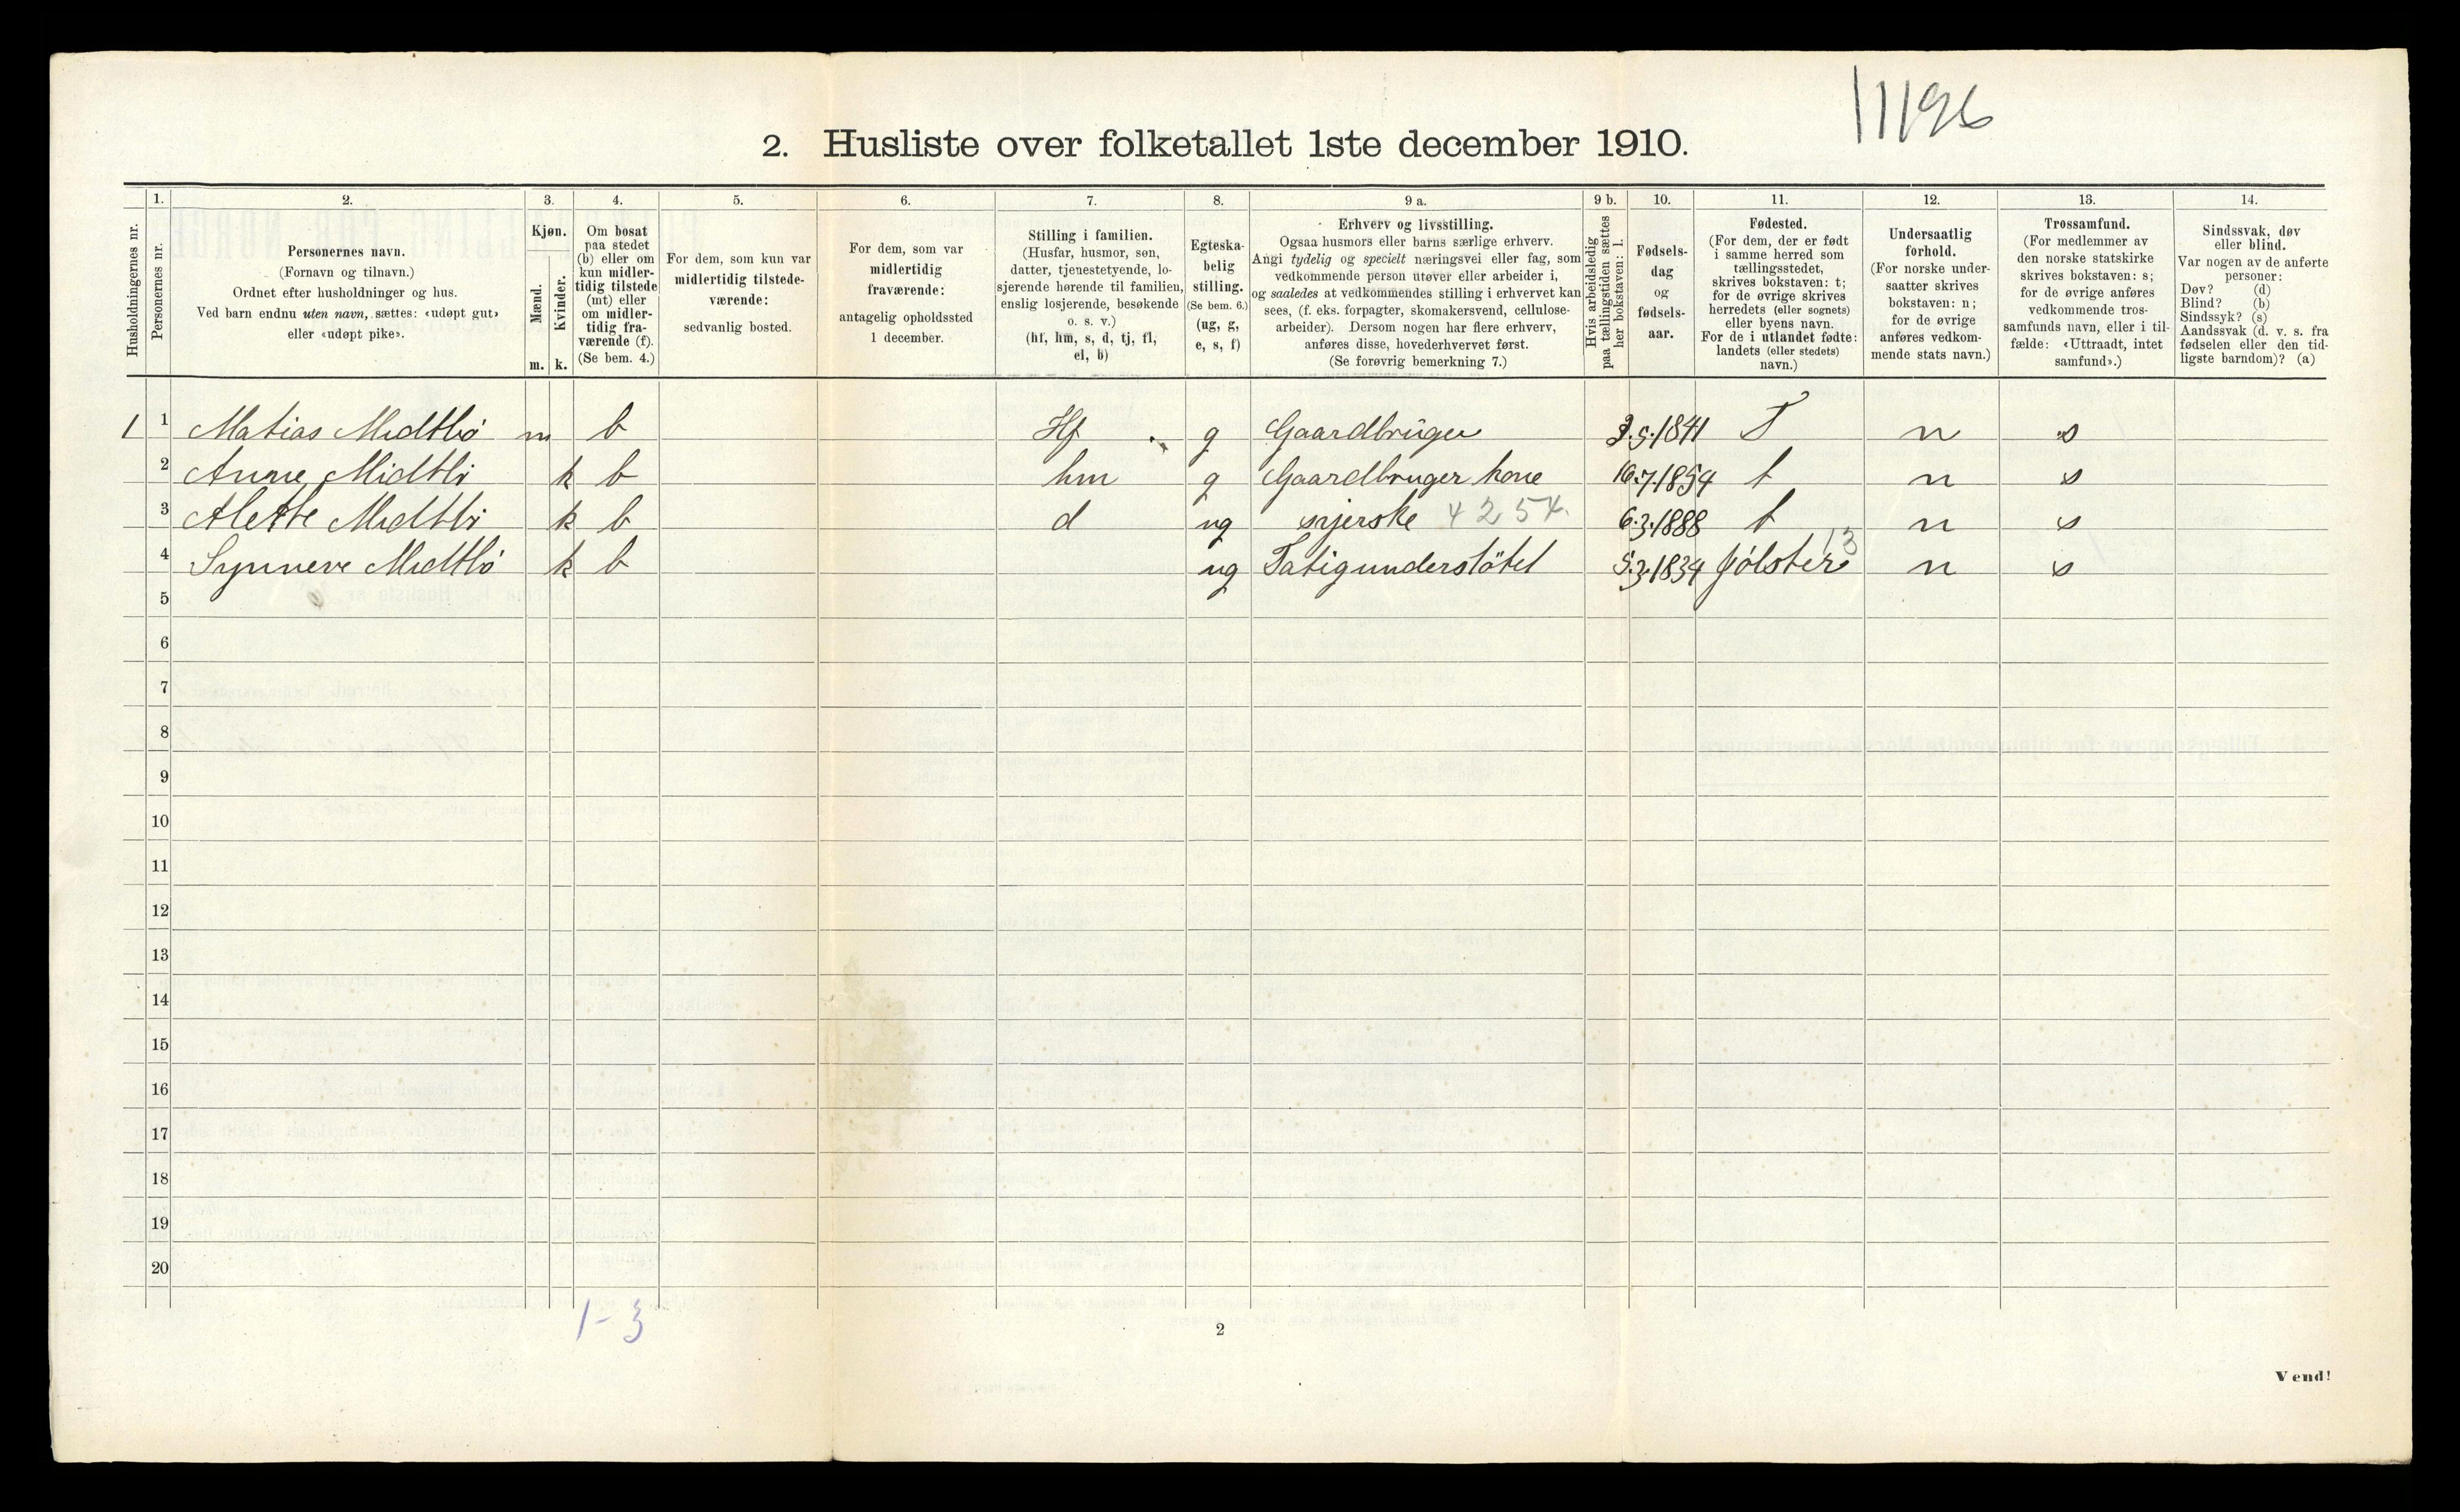 11196
2. Husliste over folketallet 1ste december 1910.
Husholdningernes nr.
1.
Personernes nr.
2.
Personernes navn.
(Fornavn og tilnavn.)
Ordnet efter husholdninger og hus.
Ved barn endnu uten navn, sættes: «udøpt gut»
eller «udøpt pike».
3.
Kjøn.
Mænd.
Kvinder.
m. k.
4.
Om bosat
paa stedet
(b) eller om
kun midler-
tidig tilstede
(mt) eller
om midler-
tidig fra-
værende (f).
(Se bem. 4.)
5.
For dem, som kun var
midlertidig tilstede-
værende:
sedvanlig bosted.
6.
For dem, som var
midlertidig
fraværende:
antagelig opholdssted
1 december.
7.
Stilling i familien.
(Husfar, husmor, søn,
datter, tjenestetyende, lo-
sjerende hørende til familien,
enslig losjerende, besøkende
o. s. v.)
(hf, hm, s, d, tj, fl,
el, b)
8.
Egteska-
belig
stilling.
(Se bem. 6.)
(ug, g,
e, s, f)
9 a.
Erhverv og livsstilling.
Ogsaa husmors eller barns særlige erhverv.
Angi tydelig og specielt næringsvei eller fag, som
vedkommende person utøver eller arbeider i,
og saaledes at vedkommendes stilling i erhvervet kan
sees, (f. eks. forpagter, skomakersvend, cellulose-
arbeider). Dersom nogen har flere erhverv,
anføres disse, hovederhvervet først.
(Se forøvrig bemerkning 7.)
9 b.
Hvis arbeidsledig
paa tællingstiden sættes
her bokstaven: l.
10.
Fødsels-
dag
og
fødsels-
aar.
11.
Fødested.
(For dem, der er født
i samme herred som
tællingsstedet,
skrives bokstaven: t;
for de øvrige skrives
herredets (eller sognets)
eller byens navn.
For de i utlandet fødte:
landets (eller stedets)
navn.)
12.
Undersaatlig
forhold.
(For norske under-
saatter skrives
bokstaven: n;
for de øvrige
anføres vedkom-
mende stats navn.)
13.
Trossamfund.
(For medlemmer av
den norske statskirke
skrives bokstaven: s;
for de øvrige anføres
vedkommende tros-
samfunds navn, eller i til-
fælde: «Uttraadt, intet
samfund».)
14.
Sindssvak, døv
eller blind.
Var nogen av de anførte
personer:
Døv? (d)
Blind? (b)
Sindssyk? (s)
Aandssvak (d. v. s. fra
fødselen eller den tid-
ligste barndom)? (a)
1 1 Matias Midtbö m b Hf g Gaardbrüger 3.5.1841 T n s
2 Anne Midtbö k b hm g Gaardbruger kone 16.7.1854 t n s
3 Alette Midtbö k b d ug syerske 4254. 6.3.1888 t n s
4 Synneve Midtbö k b ug Fatigunderstötet 5.3.1834 Jölster 13 n s
5
6
7
8
9
10
11
12
13
14
15
16
17
18
19
20
1-3
2
Vend!